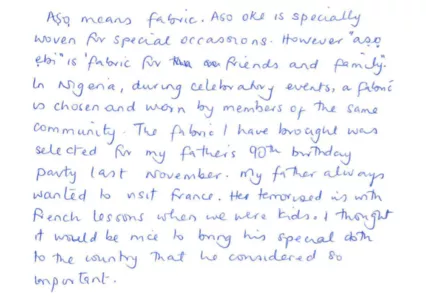 Aṣọ means fabric. Aso oke is specially
woven for special occassions. However "aṣọ
ẹbi" is 'fabric for friends and family".
In Nigeria, during celebratory events, a fabric
is chosen and worn by members of the same
community. The fabric I have brought was
selected for my father's 90th birthday
party last November. My father always
wanted to visit France. He terrorised us with
French lessons when we were kids. I thought
it would be nice to bring his special cloth
to the country that he considered so
important.